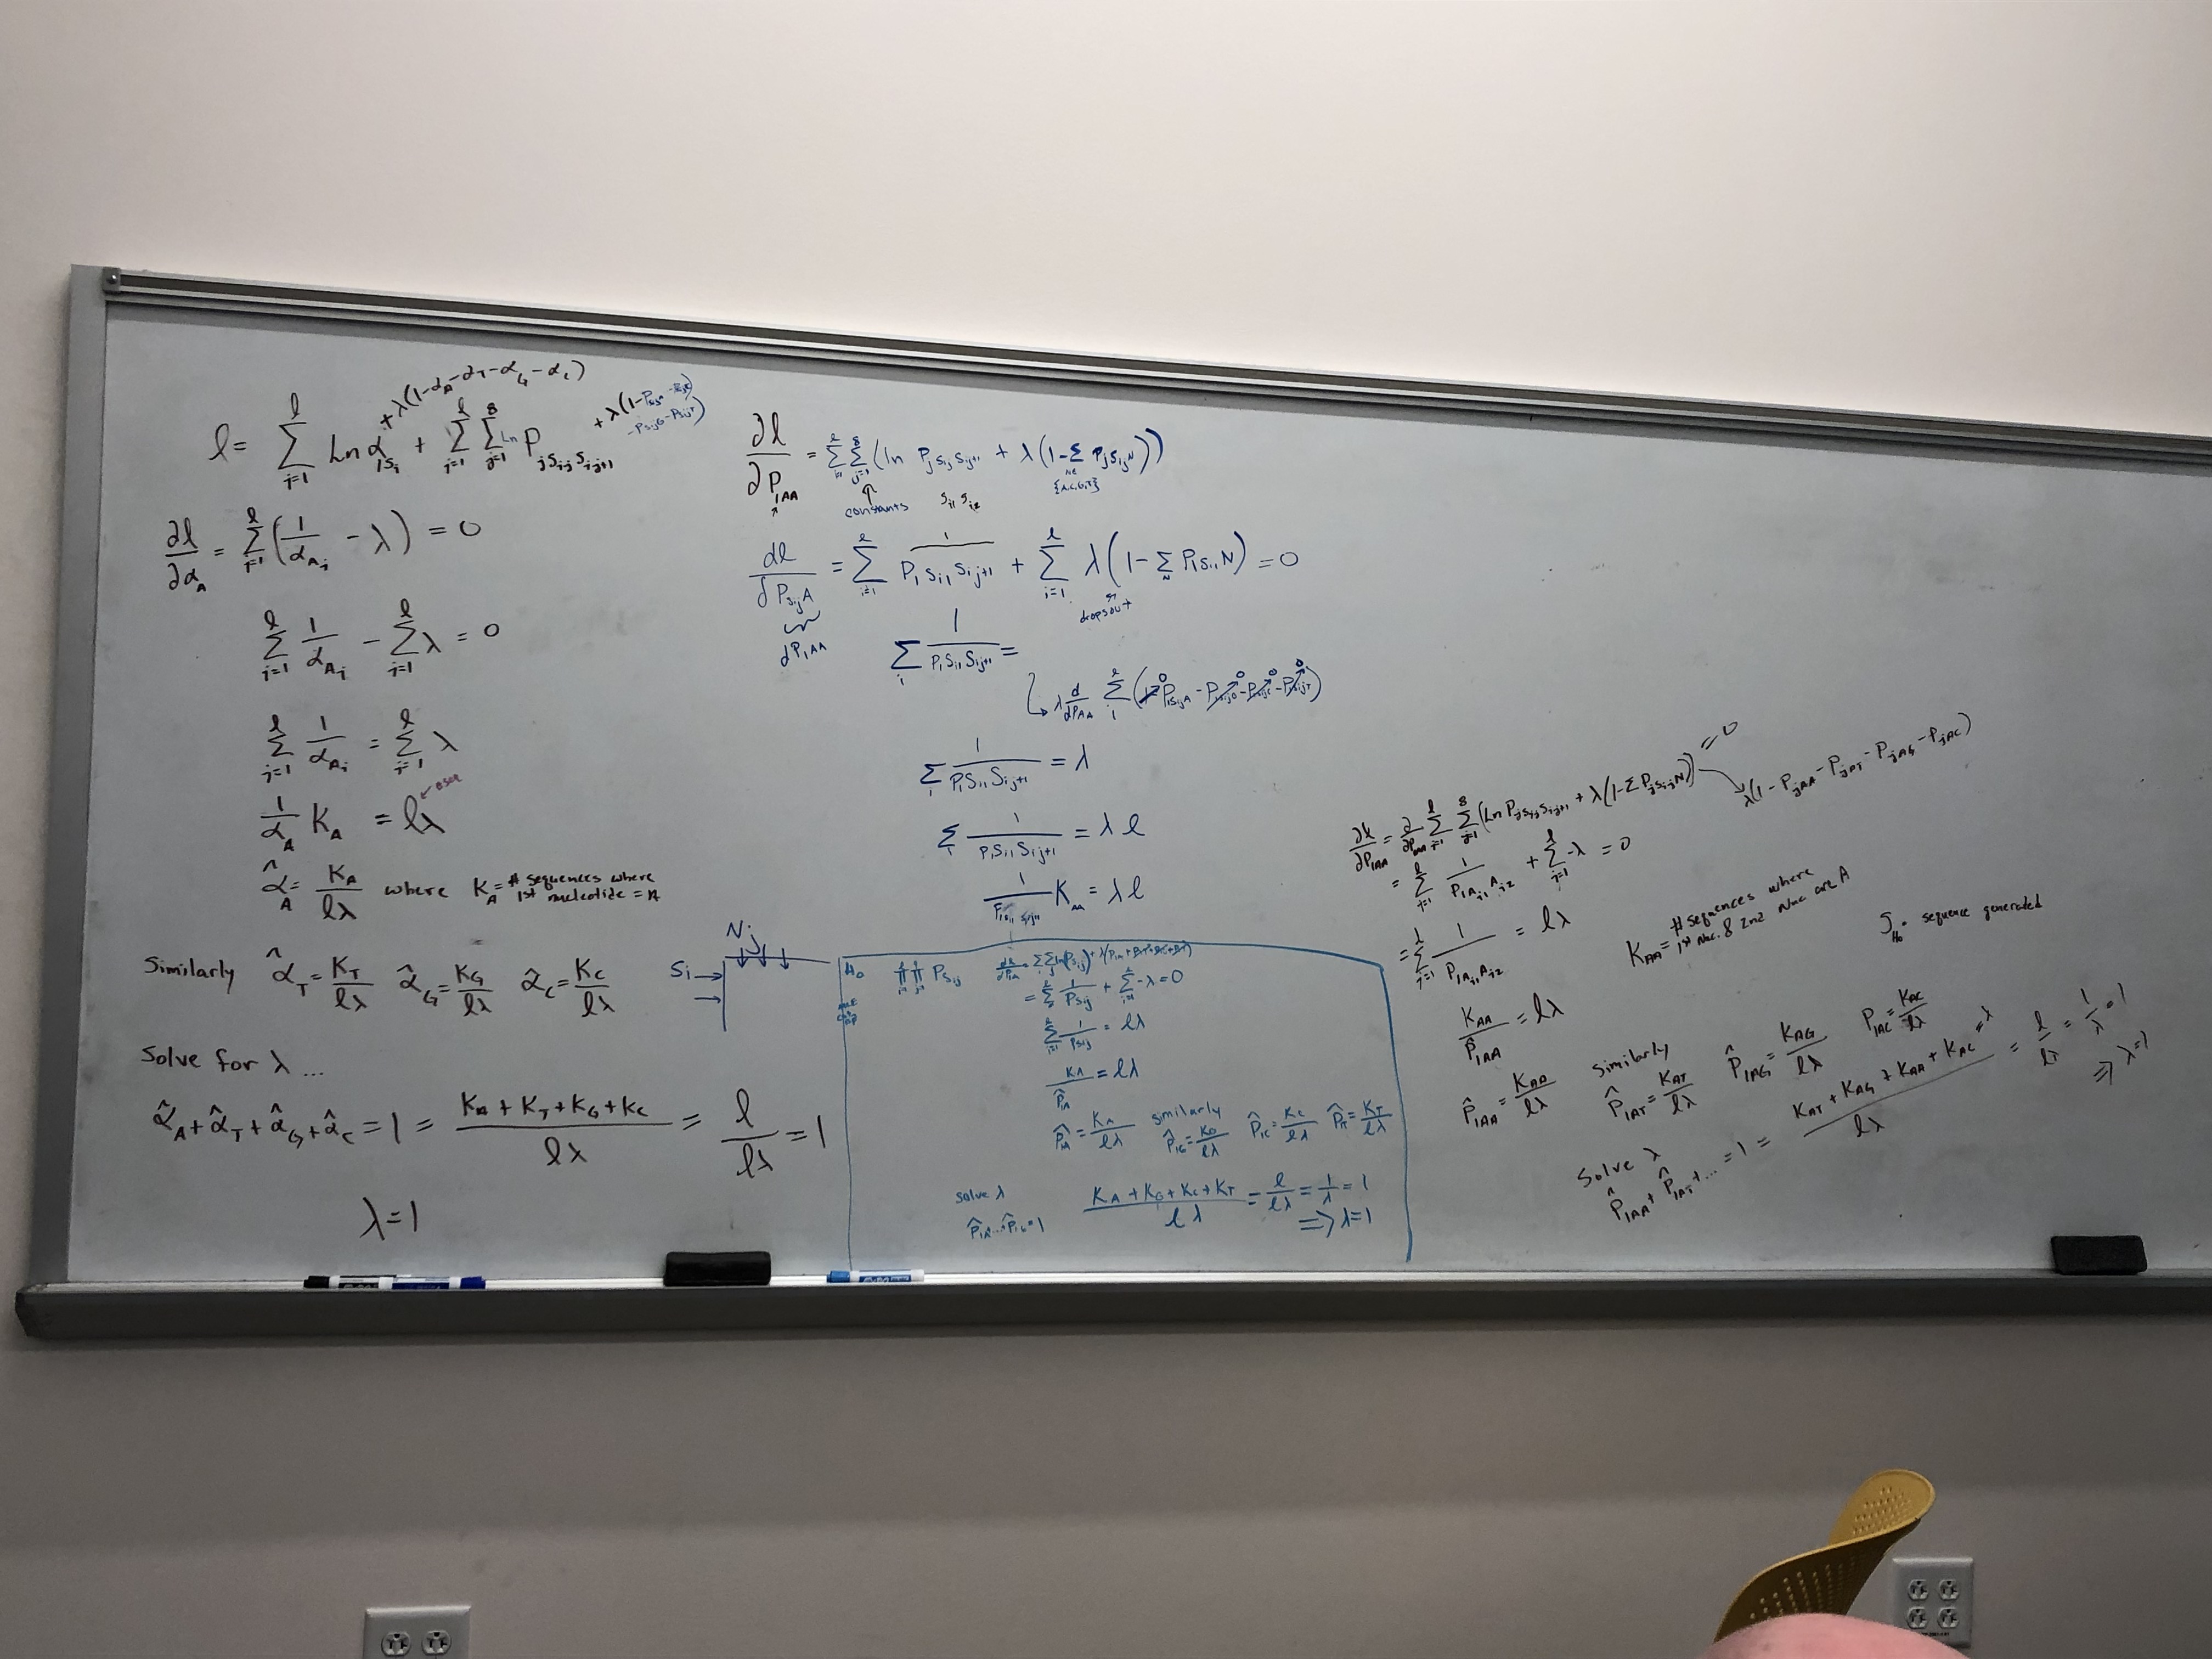 +λ(1-α_A-α_T-α_G-α_C)
l = Σ_{i=1}^{l} Ln α_{1S_i} + Σ_{i=1}^{l} Σ_{j=1}^{8} Ln P_{jS_{ij}S_{ij+1}}
∂l/∂α_A = Σ_{i=1}^{l} (1/α_{A_i} - λ) = 0
Σ_{i=1}^{l} 1/α_{A_i} - Σ_{i=1}^{l} λ = 0
Σ_{i=1}^{l} 1/α_{A_i} = Σ_{i=1}^{l} λ
1/α_A K_A = lλ
α̂_A = K_A/lλ where K_A = # sequences where
1st nucleotide = A
Similarly α̂_T = K_T/lλ α̂_G = K_G/lλ α̂_C = K_C/lλ
Solve for λ ...
α̂_A + α̂_T + α̂_G + α̂_C = 1 = (K_A + K_T + K_G + K_C)/lλ = l/lλ = 1
λ = 1
∂l/∂P_{1AA} = Σ_{i=1}^{l} Σ_{j=1}^{8} (ln P_{jS_{ij}S_{ij+1}} + λ(1 - Σ_{N∈{A,C,G,T}} P_{jS_{ij}N}))
constants S_{i1} S_{i2}
dl/∂P_{S_{ij}A} = Σ_{i=1}^{l} 1/P_{1S_{i1}S_{ij+1}} + Σ_{i=1}^{l} λ(1 - Σ_N P_{1S_{i1}N}) = 0
dP_{1AA}
drops out
Σ_i 1/P_{1S_{i1}S_{ij+1}} =
Σ_i 1/P_{1S_{i1}S_{ij+1}} = λ
Σ_i 1/P_{1S_{i1}S_{ij+1}} = λ l
K_{AA} = λ l
N_j
S_i →
→
H_0
Π_{i=1}^{l} Π_{j=1} P_{S_{ij}}
= Σ_{i=1}^{l} 1/P_{S_{ij}} + Σ_{i=1}^{l} -λ = 0
Σ_{i=1}^{l} 1/P_{S_{ij}} = lλ
K_A/P̂_{1A} = lλ
P̂_{1A} = K_A/lλ similarly P̂_{1G} = K_G/lλ P̂_{1C} = K_C/lλ P̂_{1T} = K_T/lλ
solve λ
P̂_{1A}...P̂_{1G} = 1
(K_A + K_G + K_C + K_T)/lλ = l/lλ = 1/λ = 1
⇒ λ = 1
∂l/∂P_{1AA} = ∂/∂P_{1AA} Σ_{i=1}^{l} Σ_{j=1}^{8} (Ln P_{jS_{ij}S_{ij+1}} + λ(1 - Σ P_{jS_{ij}N})) = 0
λ(1 - P_{jAA} - P_{jAT} - P_{jAG} - P_{jAC})
= Σ_{i=1}^{l} 1/P_{1A_{i1}A_{i2}} + Σ_{i=1}^{l} -λ = 0
= Σ_{i=1}^{l} 1/P_{1A_{i1}A_{i2}} = lλ
K_{AA} = # sequences where
1st Nuc. & 2nd Nuc are A
sequence generated
K_{AA}/P̂_{1AA} = lλ
P̂_{1AA} = K_{AA}/lλ Similarly P̂_{1AT} = K_{AT}/lλ P̂_{1AG} = K_{AG}/lλ P_{1AC} = K_{AC}/lλ
Solve λ
P̂_{1AA} + P̂_{1AT} + ... = 1 = (K_{AT} + K_{AG} + K_{AA} + K_{AC})/lλ = l/lλ = 1/λ = 1
⇒ λ = 1